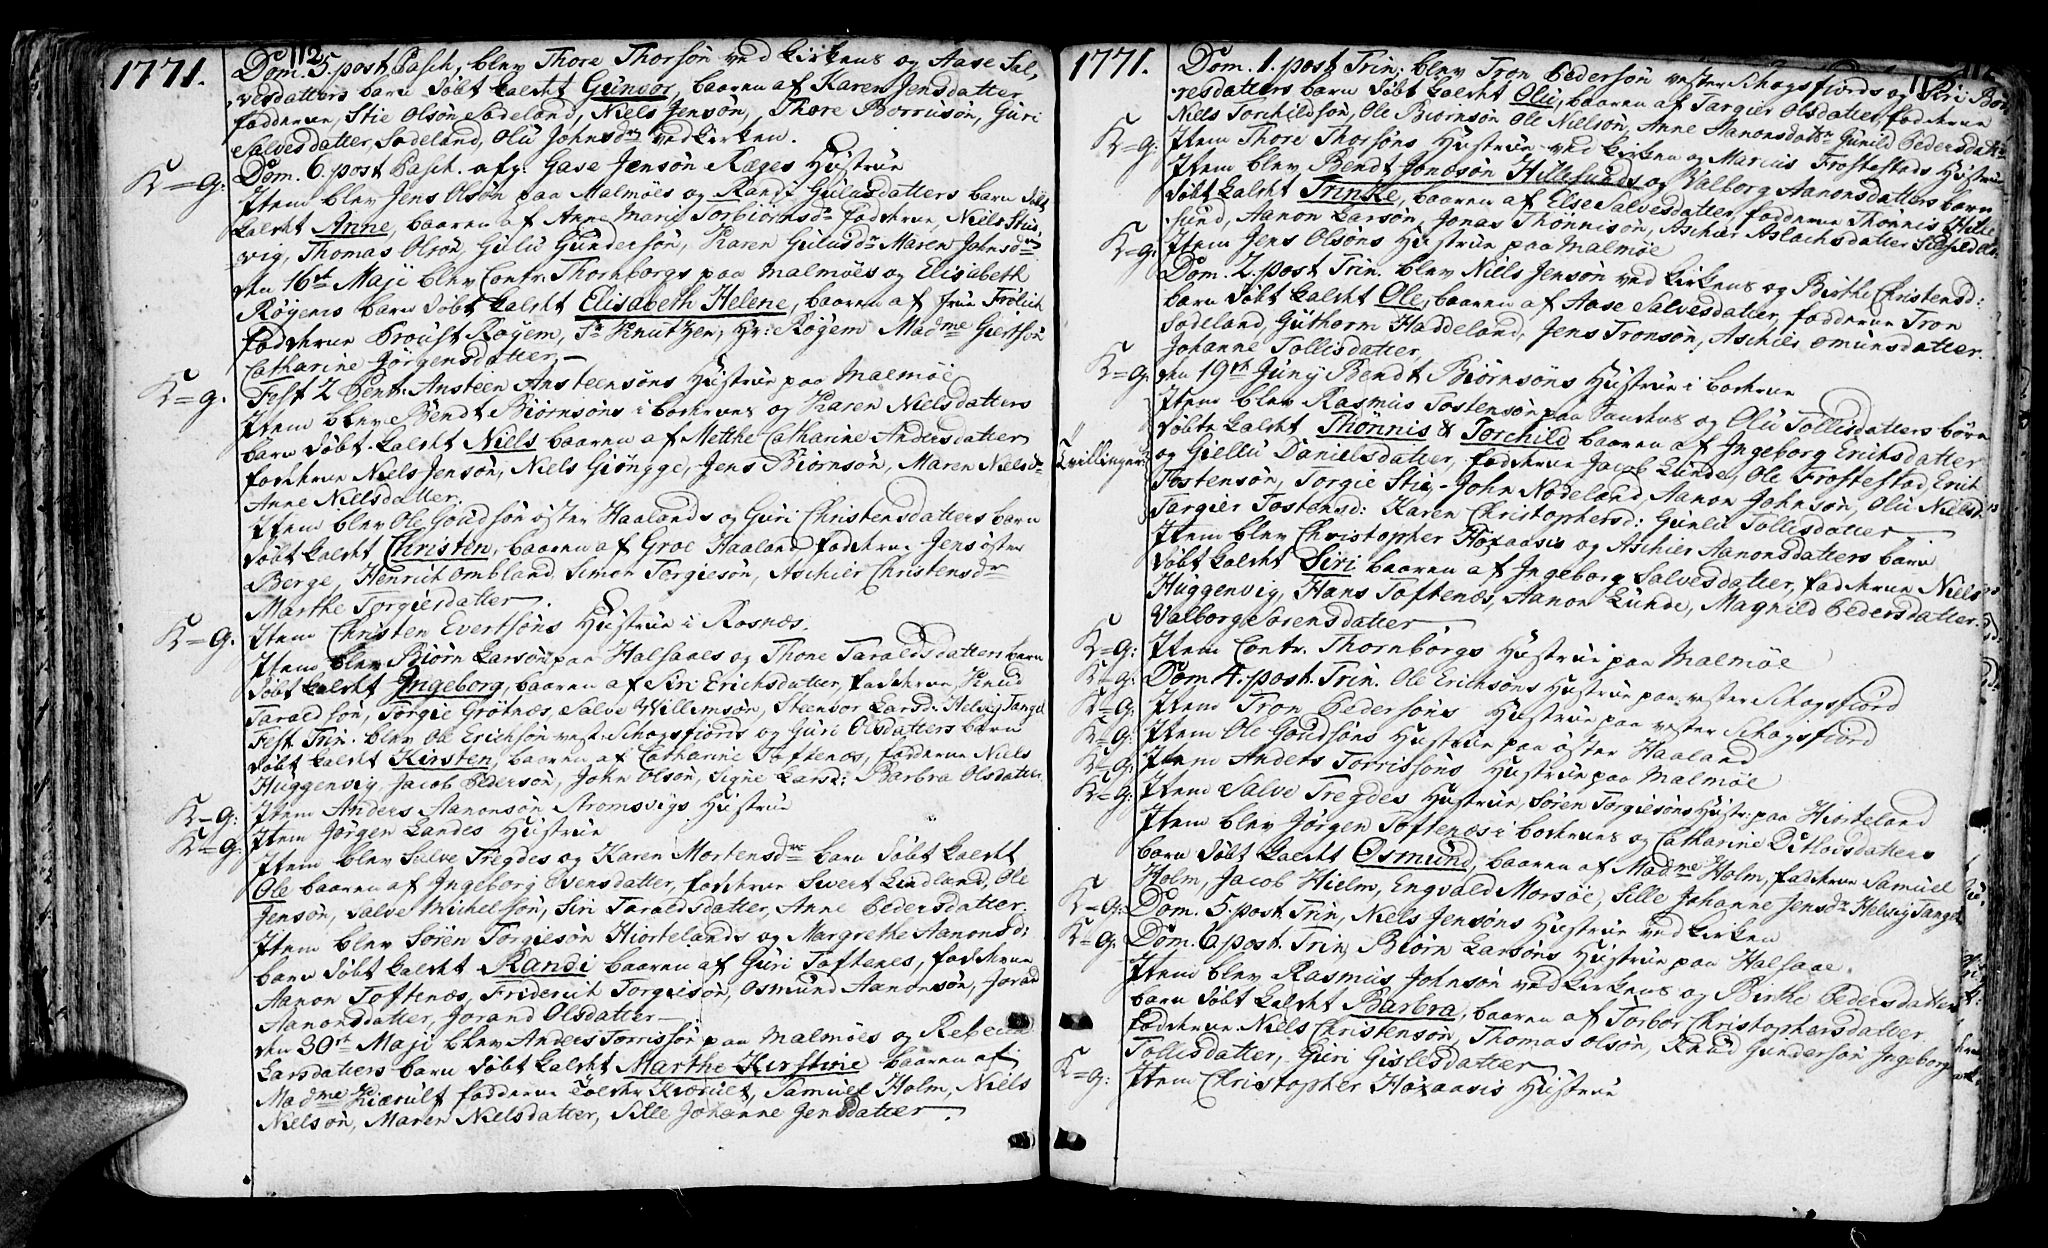 112
1771.
Dom. 5. post Pasch. blev Thore Thorsøn ved kirkens og Aase Sal,
vesdatters barn døbt kaldet Gunvor, baaren af Karen Jensdatter
fadderne, Stie Olsøn Sødeland, Niels Jensøn, Thore Borrusøn, Guri
Salvesdatter, Sodeland, Olu Johnsdr ved kerken.
K=g: Dom. 6. post Pasch. afg: Gase Jensøn Rages Hustrue
Item blev Jens Olsøn paa Malmøes og Randi Gulusdatters barn døbt
kaldet Anne, baaren af Anne Marie Torbiørnsdr fadderne, Niels Stus,
vig, Thomas Olsøn, Gulu Gundersøn, Karen Gulusdr Maren Johnsdr
den 16de Maji blev Contr. Thornborgs paa Malmøes og Elisabeth
Røgems barn døbt kaldet Elisabeth Helene, baaren af frue Frølich
fadderne Proust Røgem, Sr Knutzen, Hr: Røgem Madme Giertsøn
Catharine Jörgensdatter
K=g. Fest 2 Pent: Ansteen Ansteensøns Hustrue paa Malmøe
Item blev Bendt Biørnsøns i boderne og Karen Nielsdatters
barn døbt kaldet Niels baaren af Metthe Catharine Andersdatter
fadderne Niels Jensøn, Niels Giøngge, Jens Biørnsøn, Maren Nielsdr
Anne Nielsdatter.
Item blev Ole Goudsøn øster Haalands og Guri Christensdatters barn
døbt kaldet Christen, baaren af Groe Haaland fadderne Jens øster
Berge, Henrich Ombland, Simon Torgiesøn, Aschier Christensdr
Marthe Torgiersdatter.
K=g. Item Christen Evertsøns Hustrue i Rosnæs.
Item blev Biørn Larsøn paa Halsaaes og Thone Taraldsdatters barn
døbt kaldet Ingeborg, baaren af Siri Erichsdatter, fadderne Knud
Taraldsøn, Torgie Grötnæs, Salve Willumsøn, Steenvor Larsd: Helvig Tangel
Fest Trin. blev Ole Erichsøn vest: Schogsfiords og Guri Olsdatters barn
døbt kaldet Kirsten, baaren af Catharine Toftenæs, fadderne Niels
Huggenvig, Jacob Pedersøn, John Olsøn, Signe Larsd: Barbra Olsdatter.
K=g: Item Anders Aanonsøn Stromsvigs Hustrue
K=g: Item Jørgen Landes Hustrue
Item blev Salve Tregdes og Karen Mortensdr barn døbt kaldet
Ole baaren af Ingeborg Evensdatter, fadderne Siwert Lindland, Ole
Jensøn, Salve Michelsøn, Siri Taraldsdatter, Anne Pedersdatter.
Item blev Søren Torgiesøn Hiortelands og Margrethe Aanonsd:
barn døbt kaldet Randi baaren af Guri Toftenes, fadderne
Aanon Toftenæs, Friderich Torgiesøn, Osmund Aanonsøn, Jorand
Aanonsdatter, Jorand Olsdatter
den 30de Maji blev Anders Torrissøn paa Malmøes og Rebecca
Larsdatters barn døbt kaldet Marthe Kirstine baaren af
Madme Kierulf fadderne Kierulf, Samuel Holm, Niels
Nielsøn, Maren Nielsdatter, Sille Johanne Jensdatter.
1771.
Dom. 1. post Trin: blev Tron Pedersøn vester Schogsfiords og Siri Biø
resdatters barn døbt kaldet Olu, baaren af Targier Olsdatter, fadderne
Niels Torchildsøn, Ole Biørnsøn Ole Nielsøn, Anne Aanonsdatr Gunild Pedersdatr
K=g: Item Thore Thorsøns Hustrue ved kirken og Marcus Frostestads Hustrue
Item blev Bendt Jonæsøn Hillesunds og Valborg Aanonsdatters barn
døbt kaldet Trinke, baaren af Else Salvesdatter, fadderne Thønnis Hille
sund, Aanon Larsøn, Jonas Thønnisøn, Aschier Aslachsdatter
K=g: Item Jens Olsøns Hustrue paa Malmøe
Dom. 2. post Trin. blev Niels Jensøn ved kirkens og Birthe Christensd:
barn døbt kaldet Ole, baaren af Aase Salvesdatter, fadderne Tron
Sodeland, Guthorm Haddeland, Jens Tronsøn, Aschier Omunsdatter.
Johanne Tollisdatter,
K=g: den 19de Junij Bendt Biørnsøns Hustrue i boderne
Item blev Rasmus Tostensøn paa og Olu Tollisdatters børn
Tvillinger døbte kaldet Thönnis & Torchild baaren af Ingeborg Erichsdatter
og Giellu Danielsdatter, fadderne Jacob Lunde, Ole Frostestad, Erich
Tostensøn, Torgie Stie, John Nodeland, Aanon Johnsøn, Olu Nielsd
Targier Tostensd: Karen Christophersd: Gunlu Tollisdatter
Item blev Christopher Hoxaasis og Aschier Aanonsdatters barn
døbt kaldet Siri baaren af Ingeborg Salvesdatter, fadderne Niels
Huggenvig, Hans Toftenæs, Aanon Lunde, Magnild Pedersdatter.
Valborg Sørensdatter
K=g: Item Contr. Thornborgs Hustrue paa Malmøe
K=g: Dom. 4. post. Trin. Ole Erichsøns Hustrue paa vester Schogsfiord
K=g: Item Tron Pedersøns Hustrue paa vester Schogsfiord
K=g: Item Ole Goudsøns Hustrue paa øster Haaland
K=g: Item Anders Torrissøns Hustrue paa Malmøe
K=g: Item Salve Tregdes Hustrue, Søren Torgiesøns Hustr: paa Hiorteland
Item blev Jørgen Toftenæs i boderne og Catharine Ditlovsdatters
barn døbt kaldet Osmund, baaren af Madme Holm, fadderne Samuel
Holm, Jacob Hielm, Engvald Morsøe, Sille Johanne Jensdr Helvig Tangel
K=g: Dom. 5. post Trin, Niels Jensøns Hustrue ved kirken
K=g: Dom. 6. post. Trin, Biørn Larsøns Hustrue paa Halsaae.
Item blev Rasmus Johnsøn ved kirkens og Birthe Pedersdatter
barn døbt kaldet Barbra, baaren af Torbor Christophersdatter
fadderne Niels Christensøn, Thomas Olsøn, Knud Gundersøn Ingeborg
Tollisdatter, Guri Gisllsdatter
K=g: Item Christopher Hoxaasis Hustrue